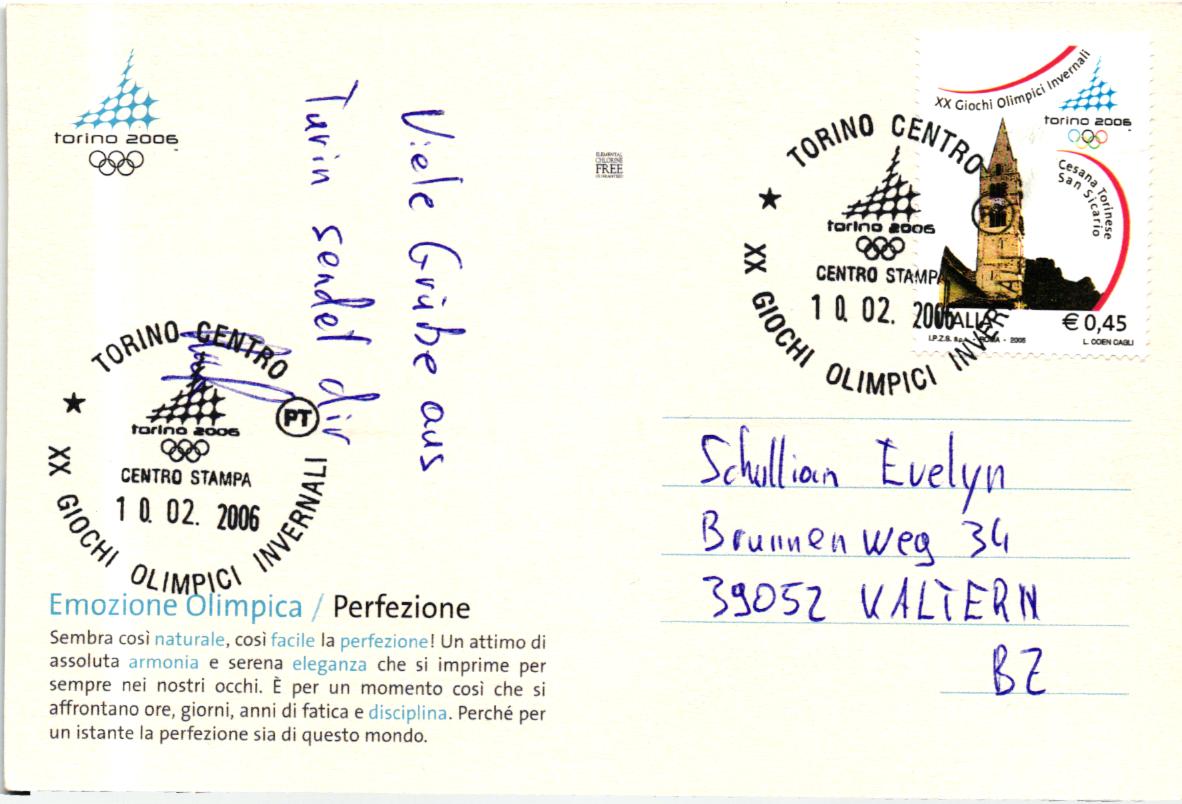 torino 2006
Viele Grüße aus
Turin sendet dir
ELEMENTAL
CHLORINE
FREE
GUARANTEED
TORINO CENTRO
torino 2006
PT
CENTRO STAMPA
10.02.2006
XX GIOCHI OLIMPICI INVERNALI
Emozione Olimpica / Perfezione
Sembra così naturale, così facile la perfezione! Un attimo di
assoluta armonia e serena eleganza che si imprime per
sempre nei nostri occhi. È per un momento così che si
affrontano ore, giorni, anni di fatica e disciplina. Perché per
un istante la perfezione sia di questo mondo.
XX Giochi Olimpici Invernali
torino 2006
Cesana Torinese
San Sicario
€ 0,45
I.P.Z.S. S.p.A. - ROMA - 2005
L. COEN CAGLI
TORINO CENTRO
torino 2006
CENTRO STAMPA
10.02.2006
XX GIOCHI OLIMPICI INVERNALI
Schullian Evelyn
Brunnenweg 34
39052 KALTERN
BZ